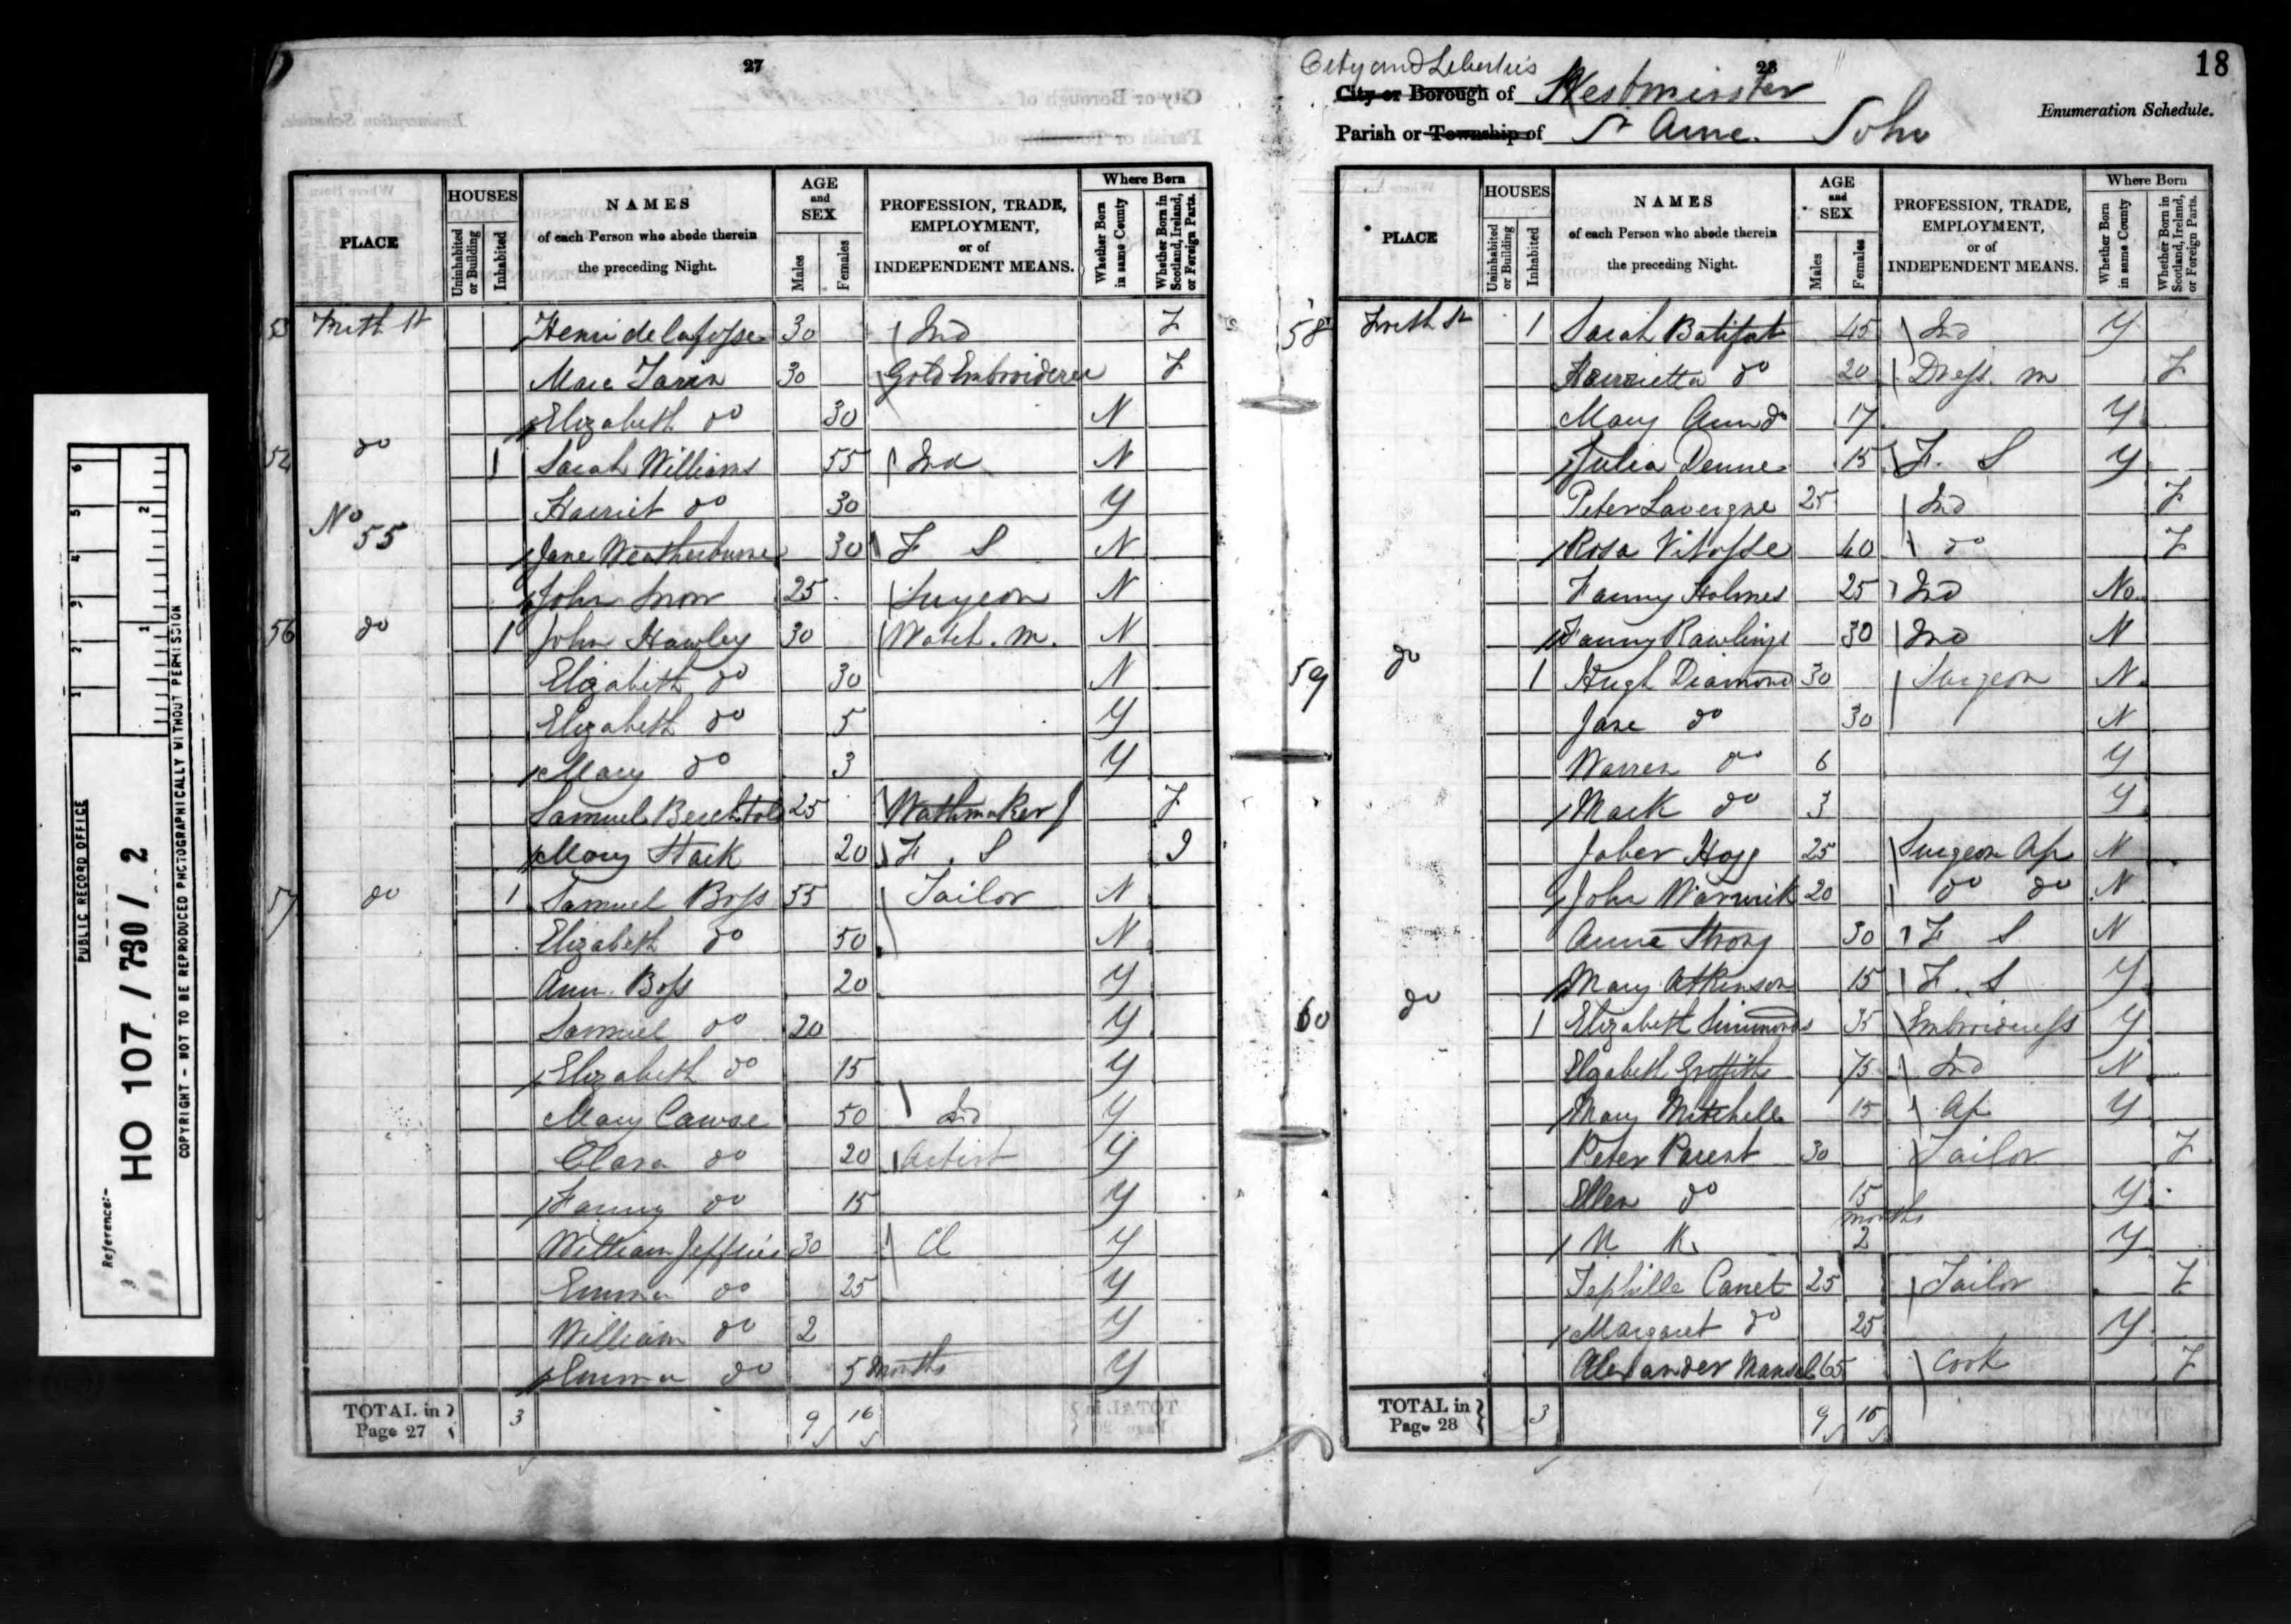 27
PLACE
HOUSES
Uninhabited or Building
Inhabited
NAMES
of each Person who abode therein
the preceding Night.
AGE
and
SEX
Males
Females
PROFESSION, TRADE,
EMPLOYMENT,
or of
INDEPENDENT MEANS.
Where Born
Whether Born in same County
Whether Born in Scotland, Ireland, or Foreign Parts.
53 Frith St Henri de lafosse 30 Ind F
Marc 30 Gold Embroiderer F
Elizabeth do 30 N
54 do 1 Sarah Williams 55 Ind N
Harriet do 30 Y
No 55 Jane Weatherburne 30 F S N
John Snow 25 Surgeon N
56 do 1 John Hawley 30 Watch. m. N
Elizabeth do 30 N
Elizabeth do 5 Y
Mary do 3 Y
Samuel Berchtold 25 Wathmaker J F
Mary Stack 20 F. S I
57 do 1 Samuel Boss 55 Tailor N
Elizabeth do 50 N
Ann. Boss 20 Y
Samuel do 20 Y
Elizabeth do 15 Y
Mary Cawse 50 Ind Y
Clara do 20 Artist Y
Fanny do 15 Y
William Jeffries 30 Cl Y
Emma do 25 Y
William do 2 Y
Emma do 5 months Y
TOTAL in Page 27 3 9 16
28
18
City and Liberties
City or Borough of Westminster
Enumeration Schedule.
Parish or Township of St Anne. Soho
PLACE
HOUSES
Uninhabited or Building
Inhabited
NAMES
of each Person who abode therein
the preceding Night.
AGE
and
SEX
Males
Females
PROFESSION, TRADE,
EMPLOYMENT,
or of
INDEPENDENT MEANS.
Where Born
Whether Born in same County
Whether Born in Scotland, Ireland, or Foreign Parts.
58 Frith St 1 Sarah Batifort 45 Ind Y
Harrietta do 20 Dress. m F
Mary Ann do 17 Y
Julia Denne 15 F. S Y
Peter Lavergne 25 Ind F
Rosa 40 do F
Fanny Holmes 25 Ind No
Fanny Rawlings 30 Ind N
59 do 1 Hugh Diamond 30 Surgeon N
Jane do 30 N
Warren do 6 Y
Mark do 3 Y
Jaber Hogg 25 Surgeon Ap N
John Warwick 20 do do N
Anne Strong 30 F S N
Mary Atkinson 15 F. S Y
60 do 1 Elizabeth Simmonds 35 Embroideress Y
Elizabeth Griffiths 75 Ind N
Mary Mitchell 15 Ap Y
Peter Parent 30 Tailor F
Ellen do 15 Y
months
N K 2 Y
Canet 25 Tailor F
Margaret do 25 Y
Alexander Mansel 65 Cook F
TOTAL in Page 28 3 9 16
PUBLIC RECORD OFFICE
1 2 3 4 5 6
1 2
Reference:-
HO 107 / 730 / 2
COPYRIGHT - NOT TO BE REPRODUCED PHOTOGRAPHICALLY WITHOUT PERMISSION